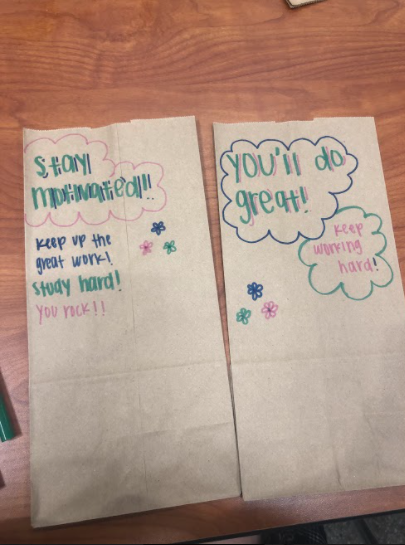 stay
motivated!!
keep up the
great work!
study hard!
you rock!!
you'll do
great!
keep
working
hard!